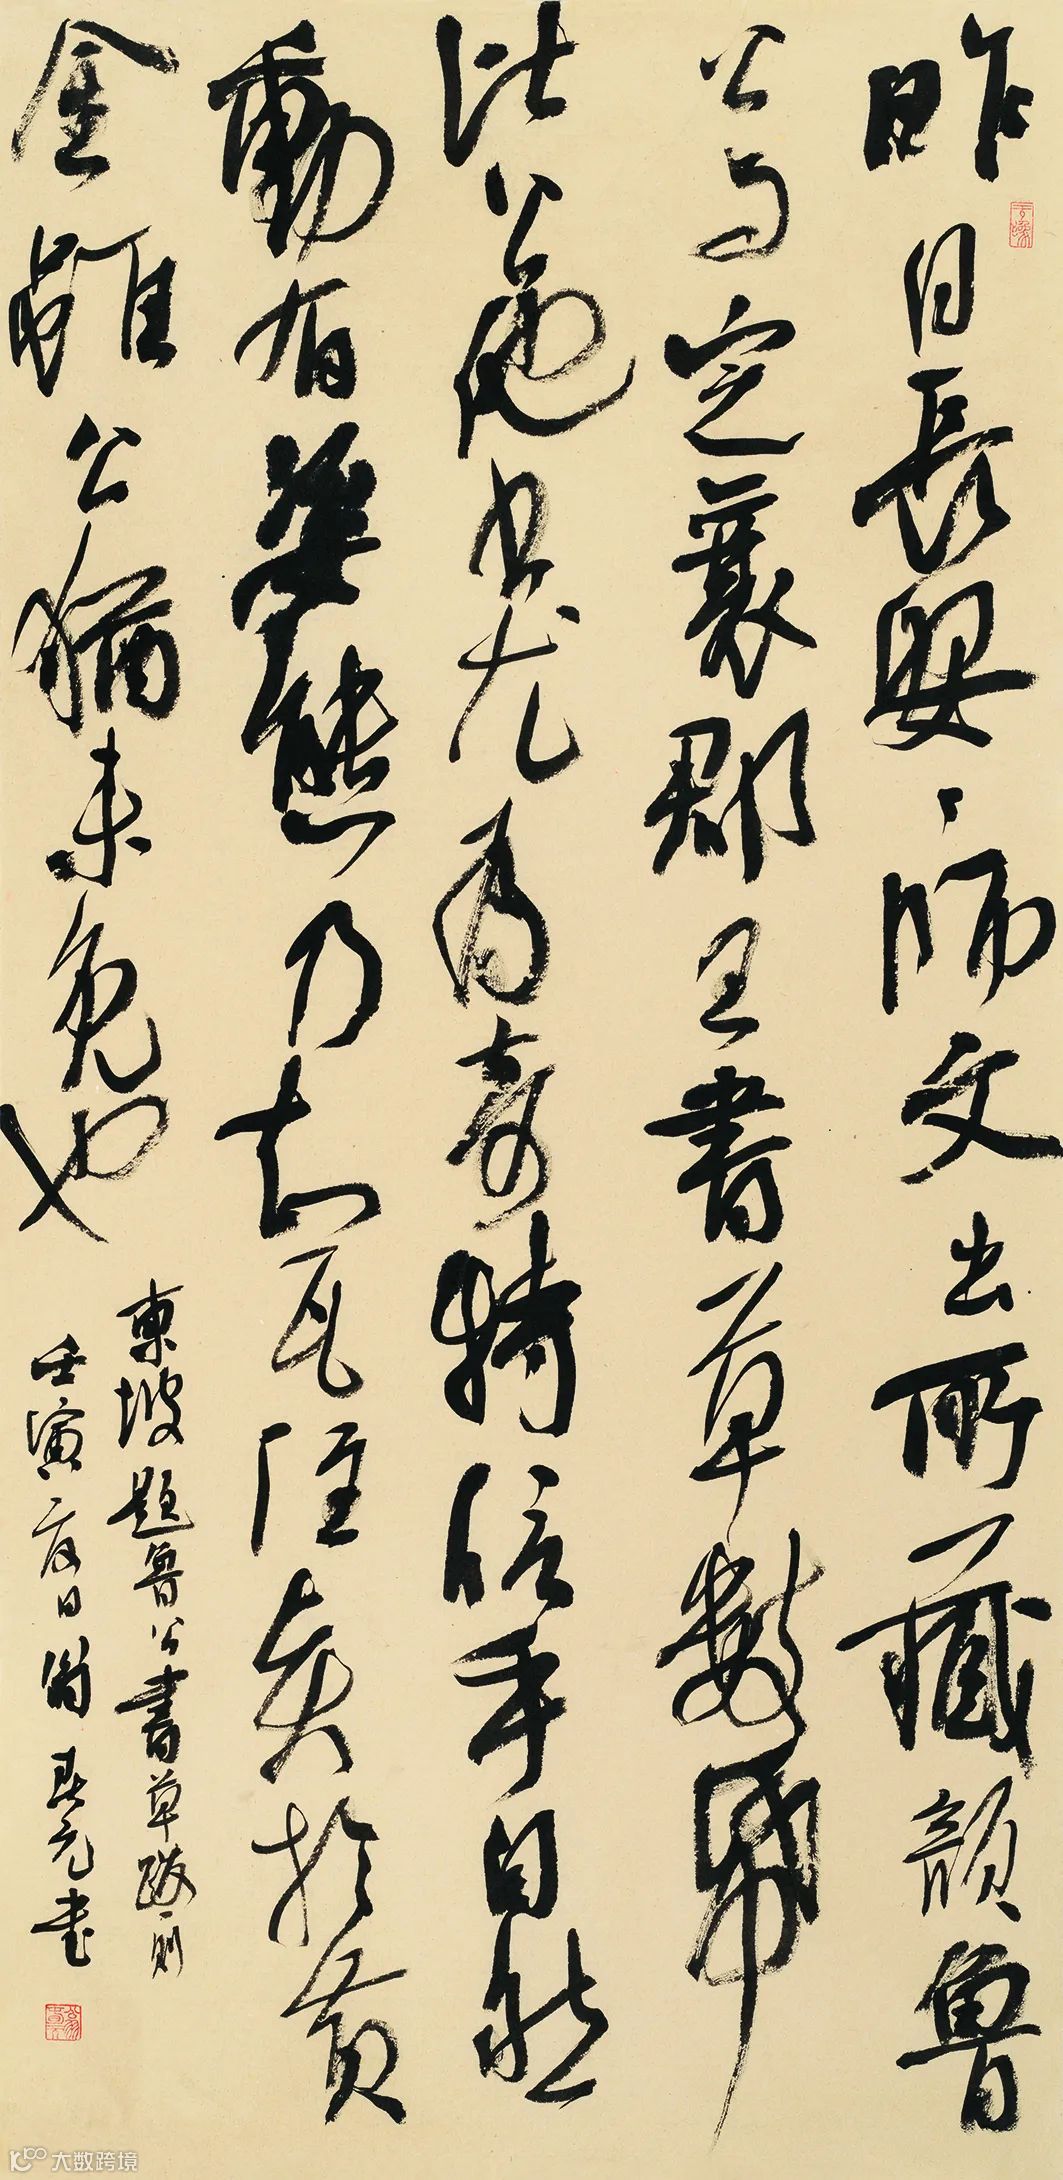 昨日長安〻師文出所藏顏魯
公与定襄郡王書草數紙
比公他書尤為奇特信手自然
動有姿態乃知瓦注賢於黃
金雖公猶未免也
東坡題魯公書草跋一則
壬寅夏日 元書
大数跨境